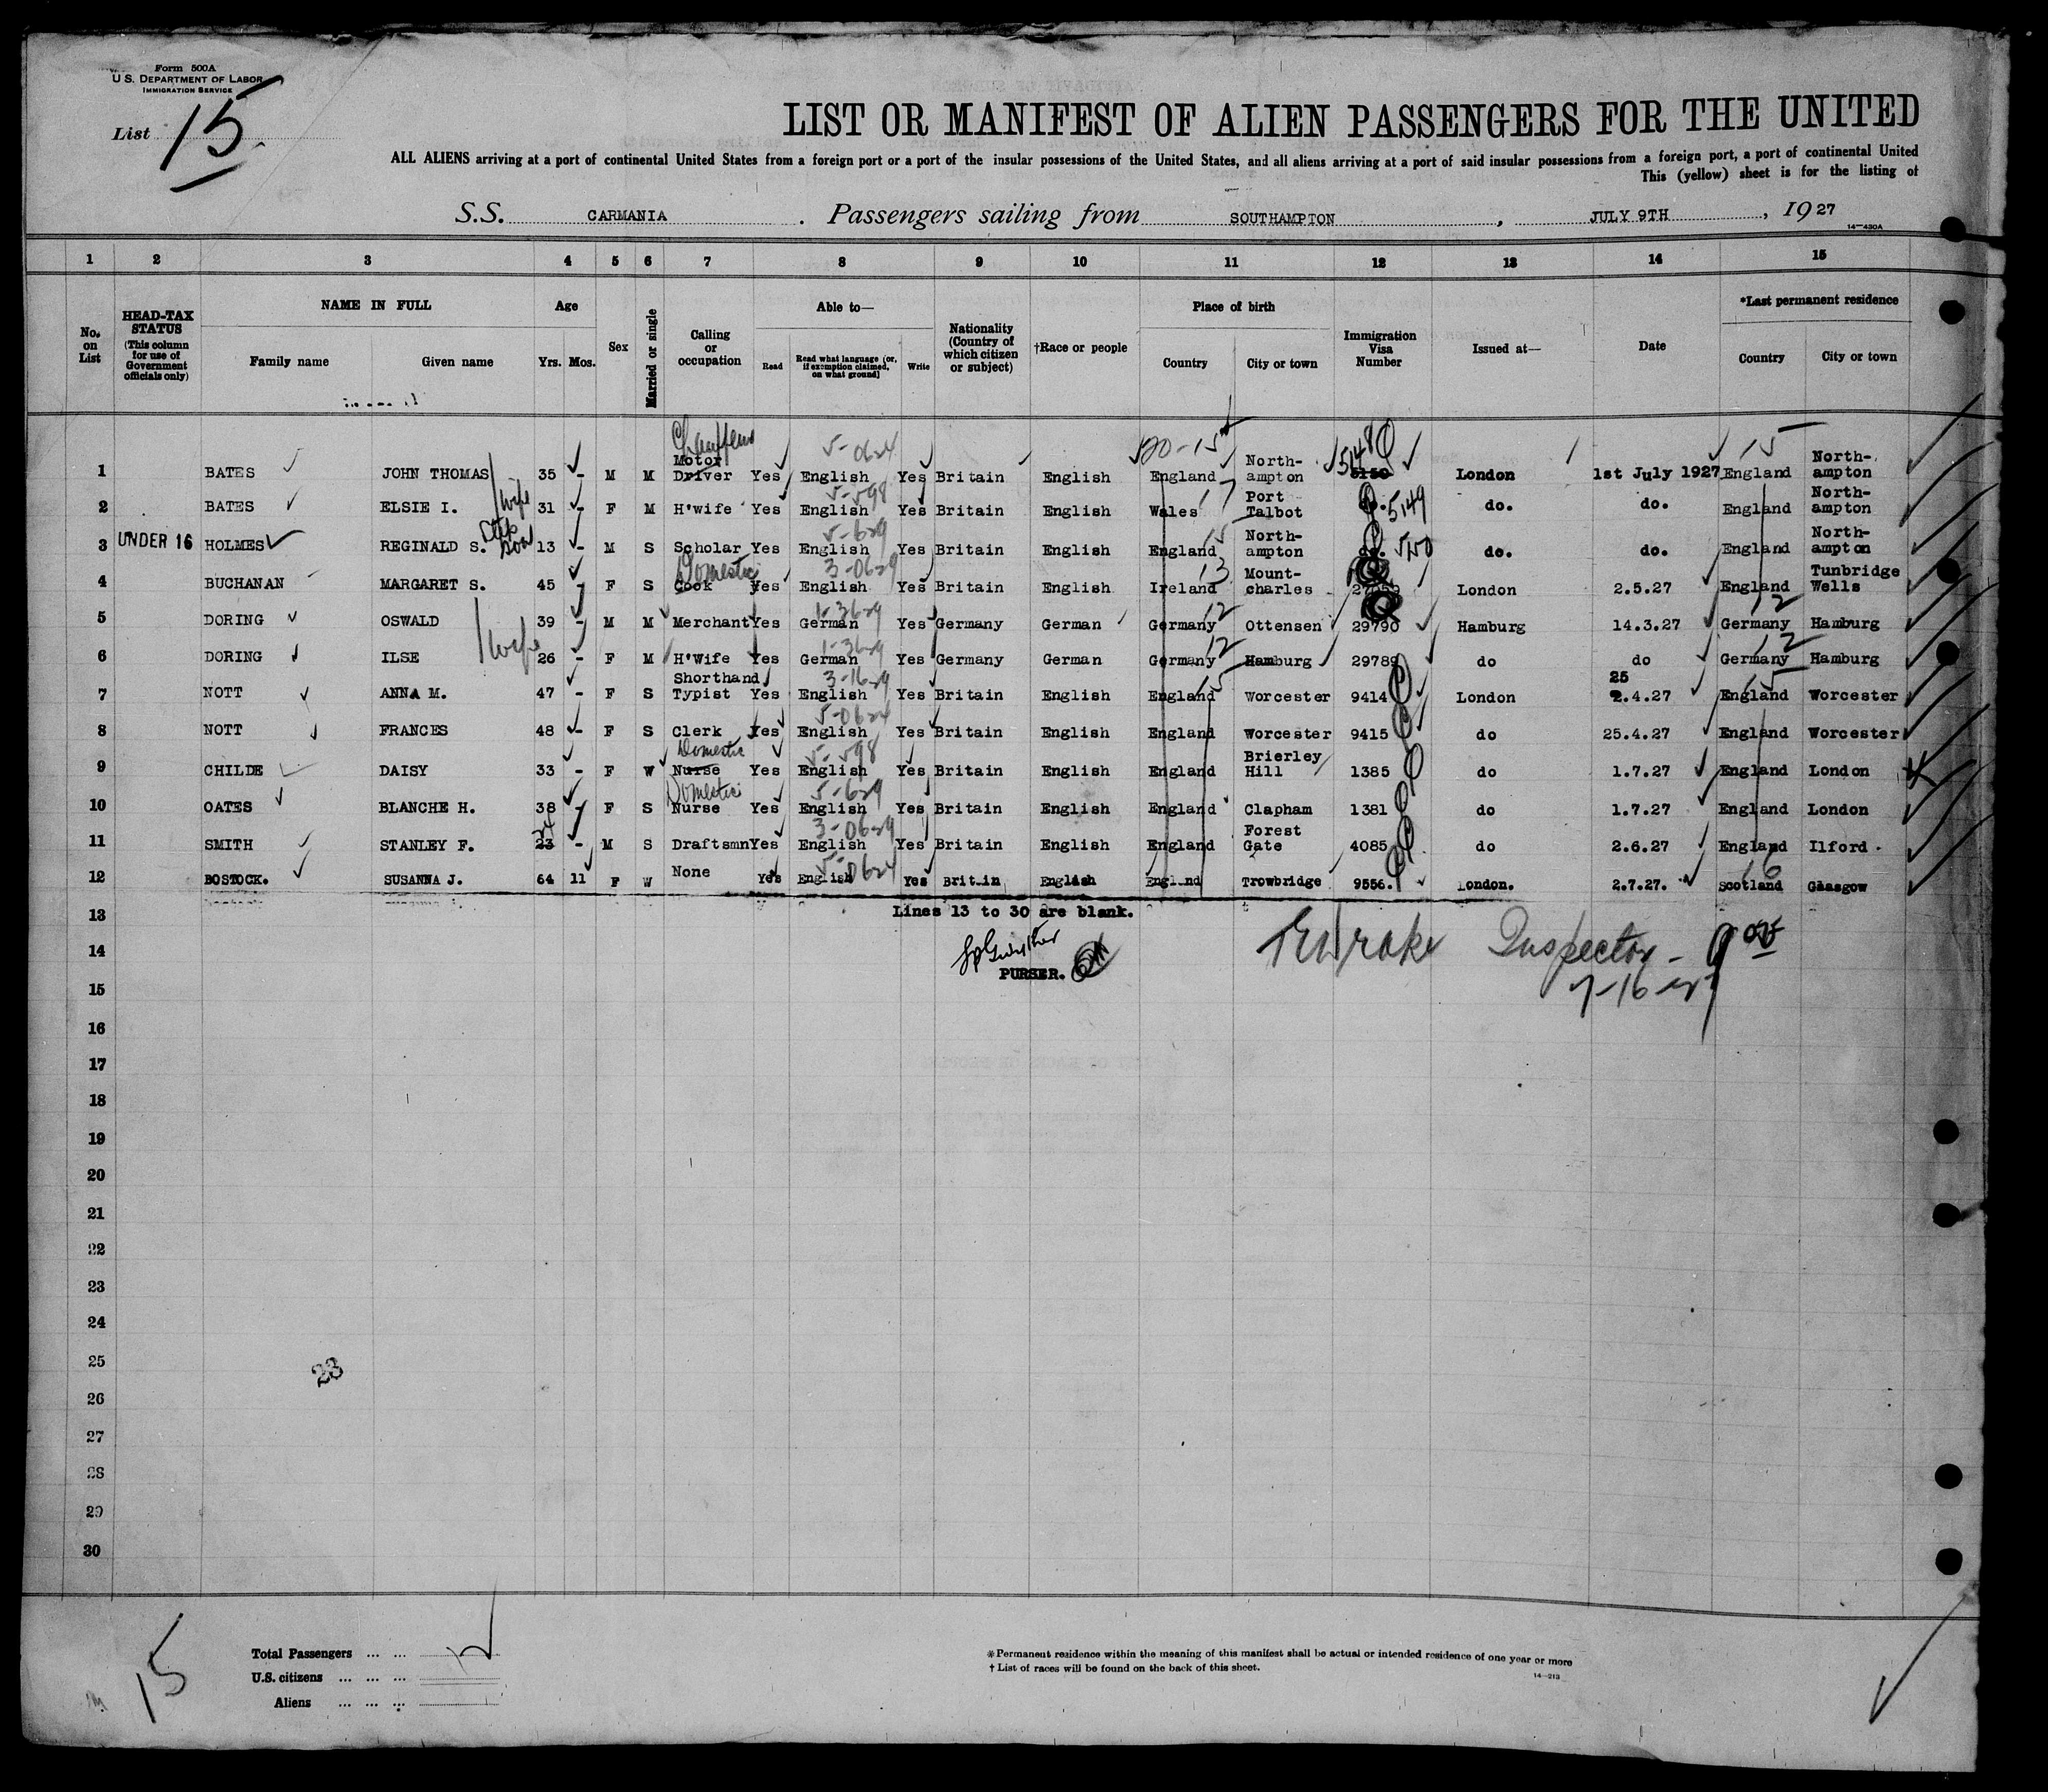 Form 500A
U. S. DEPARTMENT OF LABOR
IMMIGRATION SERVICE
List 15.
LIST OR MANIFEST OF ALIEN PASSENGERS FOR THE UNITED
ALL ALIENS arriving at a port of continental United States from a foreign port or a port of the insular possessions of the United States, and all aliens arriving at a port of said insular possessions from a foreign port, a port of continental United
This (yellow) sheet is for the listing of
S.S. CARMANIA. Passengers sailing from SOUTHAMPTON, JULY 9TH, 1927
14—430A
1 2 3 4 5 6 7 8 9 10 11 12 13 14 15
No. on List
HEAD-TAX STATUS (This column for use of Government officials only)
NAME IN FULL
Family name Given name
Age
Yrs. Mos.
Sex
Married or single
Calling or occupation
Able to—
Read
Read what language (or, if exemption claimed, on what ground)
Write
Nationality (Country of which citizen or subject)
†Race or people
Place of birth
Country City or town
Immigration Visa Number
Issued at—
Date
*Last permanent residence
Country City or town
1 BATES JOHN THOMAS 35 - M M Chauffeur Motor Driver Yes English 5-0624 Yes Britain English England 20-15 North-ampton 5150 5148 London 1st July 1927 England 15 North-ampton
2 BATES ELSIE I. wife 31 - F M H'wife Yes English 5-598 Yes Britain English Wales 17 Port Talbot 5149 do. do. England North-ampton
3 UNDER 16 HOLMES REGINALD S. Step son 13 - M S Scholar Yes English 5-629 Yes Britain English England 15 North-ampton 5150 do. do. England North-ampton
4 BUCHANAN MARGARET S. 45 - F S Domestic Cook Yes English 3-0629 Yes Britain English Ireland 13 Mount-charles London 2.5.27 England Tunbridge Wells
5 DORING OSWALD 39 - M M Merchant Yes German 1-3629 Yes Germany German Germany 12 Ottensen 29790 Hamburg 14.3.27 Germany 12 Hamburg
6 DORING ILSE wife 26 - F M H'Wife Yes German 1-3629 Yes Germany German Germany 12 Hamburg 29789 do do Germany 12 Hamburg
7 NOTT ANNA M. 47 - F S Shorthand Typist Yes English 3-1629 Yes Britain English England 15 Worcester 9414 London 25 2.4.27 England 15 Worcester
8 NOTT FRANCES 48 - F S Clerk Yes English 5-0624 Yes Britain English England Worcester 9415 do 25.4.27 England Worcester
9 CHILDE DAISY 33 - F W Domestic Nurse Yes English 5-598 Yes Britain English England Brierley Hill 1385 do 1.7.27 England London
10 OATES BLANCHE H. 38 - F S Domestic Nurse Yes English 5-629 Yes Britain English England Clapham 1381 do 1.7.27 England London
11 SMITH STANLEY F. 23 24 - M S Draftsmn Yes English 3-0629 Yes Britain English England Forest Gate 4085 do 2.6.27 England Ilford
12 BOSTOCK. SUSANNA J. 64 11 F W None Yes English 5-0624 Yes Britain English England Trowbridge 9556. London. 2.7.27. Scotland 16 Glasgow
13 Lines 13 to 30 are blank.
14 PURSER. Inspector -
7-16-27
15
16
17
18
19
20
21
22
23
24
25
23
26
27
28
29
30
15
Total Passengers ... ... 12
U.S. citizens ... ... ...
Aliens ... ... ...
* Permanent residence within the meaning of this manifest shall be actual or intended residence of one year or more
† List of races will be found on the back of this sheet.
14—213